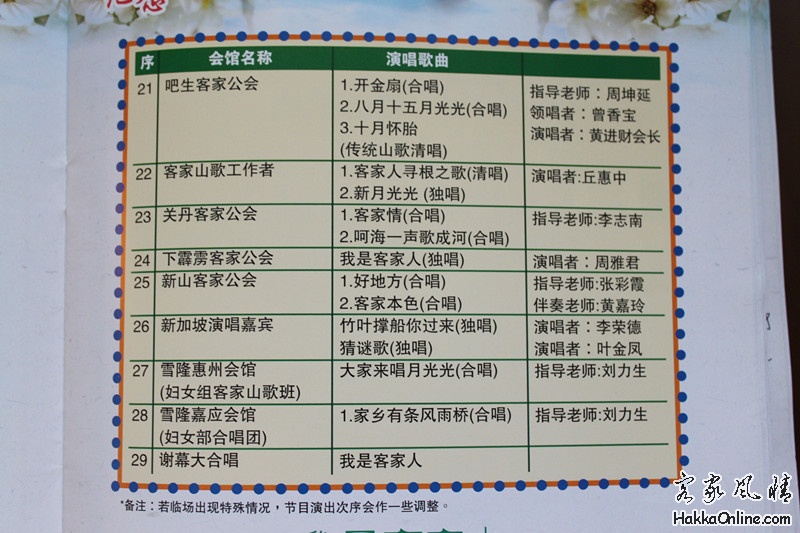 序 会馆名称 演唱歌曲
21 吧生客家公会 1.开金扇(合唱) 指导老师：周坤延
2.八月十五月光光(合唱) 领唱者：曾香宝
3.十月怀胎 演唱者：黄进财会长
(传统山歌清唱)
22 客家山歌工作者 1.客家人寻根之歌(清唱) 演唱者:丘惠中
2.新月光光 (独唱)
23 关丹客家公会 1.客家情(合唱) 指导老师:李志南
2.呵海一声歌成河(合唱)
24 下霹雳客家公会 我是客家人(独唱) 演唱者：周雅君
25 新山客家公会 1.好地方(合唱) 指导老师:张彩霞
2.客家本色(合唱) 伴奏老师:黄嘉玲
26 新加坡演唱嘉宾 竹叶撑船你过来(独唱) 演唱者：李荣德
猜谜歌(独唱) 演唱者：叶金凤
27 雪隆惠州会馆 大家来唱月光光(合唱) 指导老师:刘力生
(妇女组客家山歌班)
28 雪隆嘉应会馆 1.家乡有条风雨桥(合唱) 指导老师:刘力生
(妇女部合唱团)
29 谢幕大合唱 我是客家人
*备注：若临场出现特殊情况，节目演出次序会作一些调整。
客家风情
HakkaOnline.com